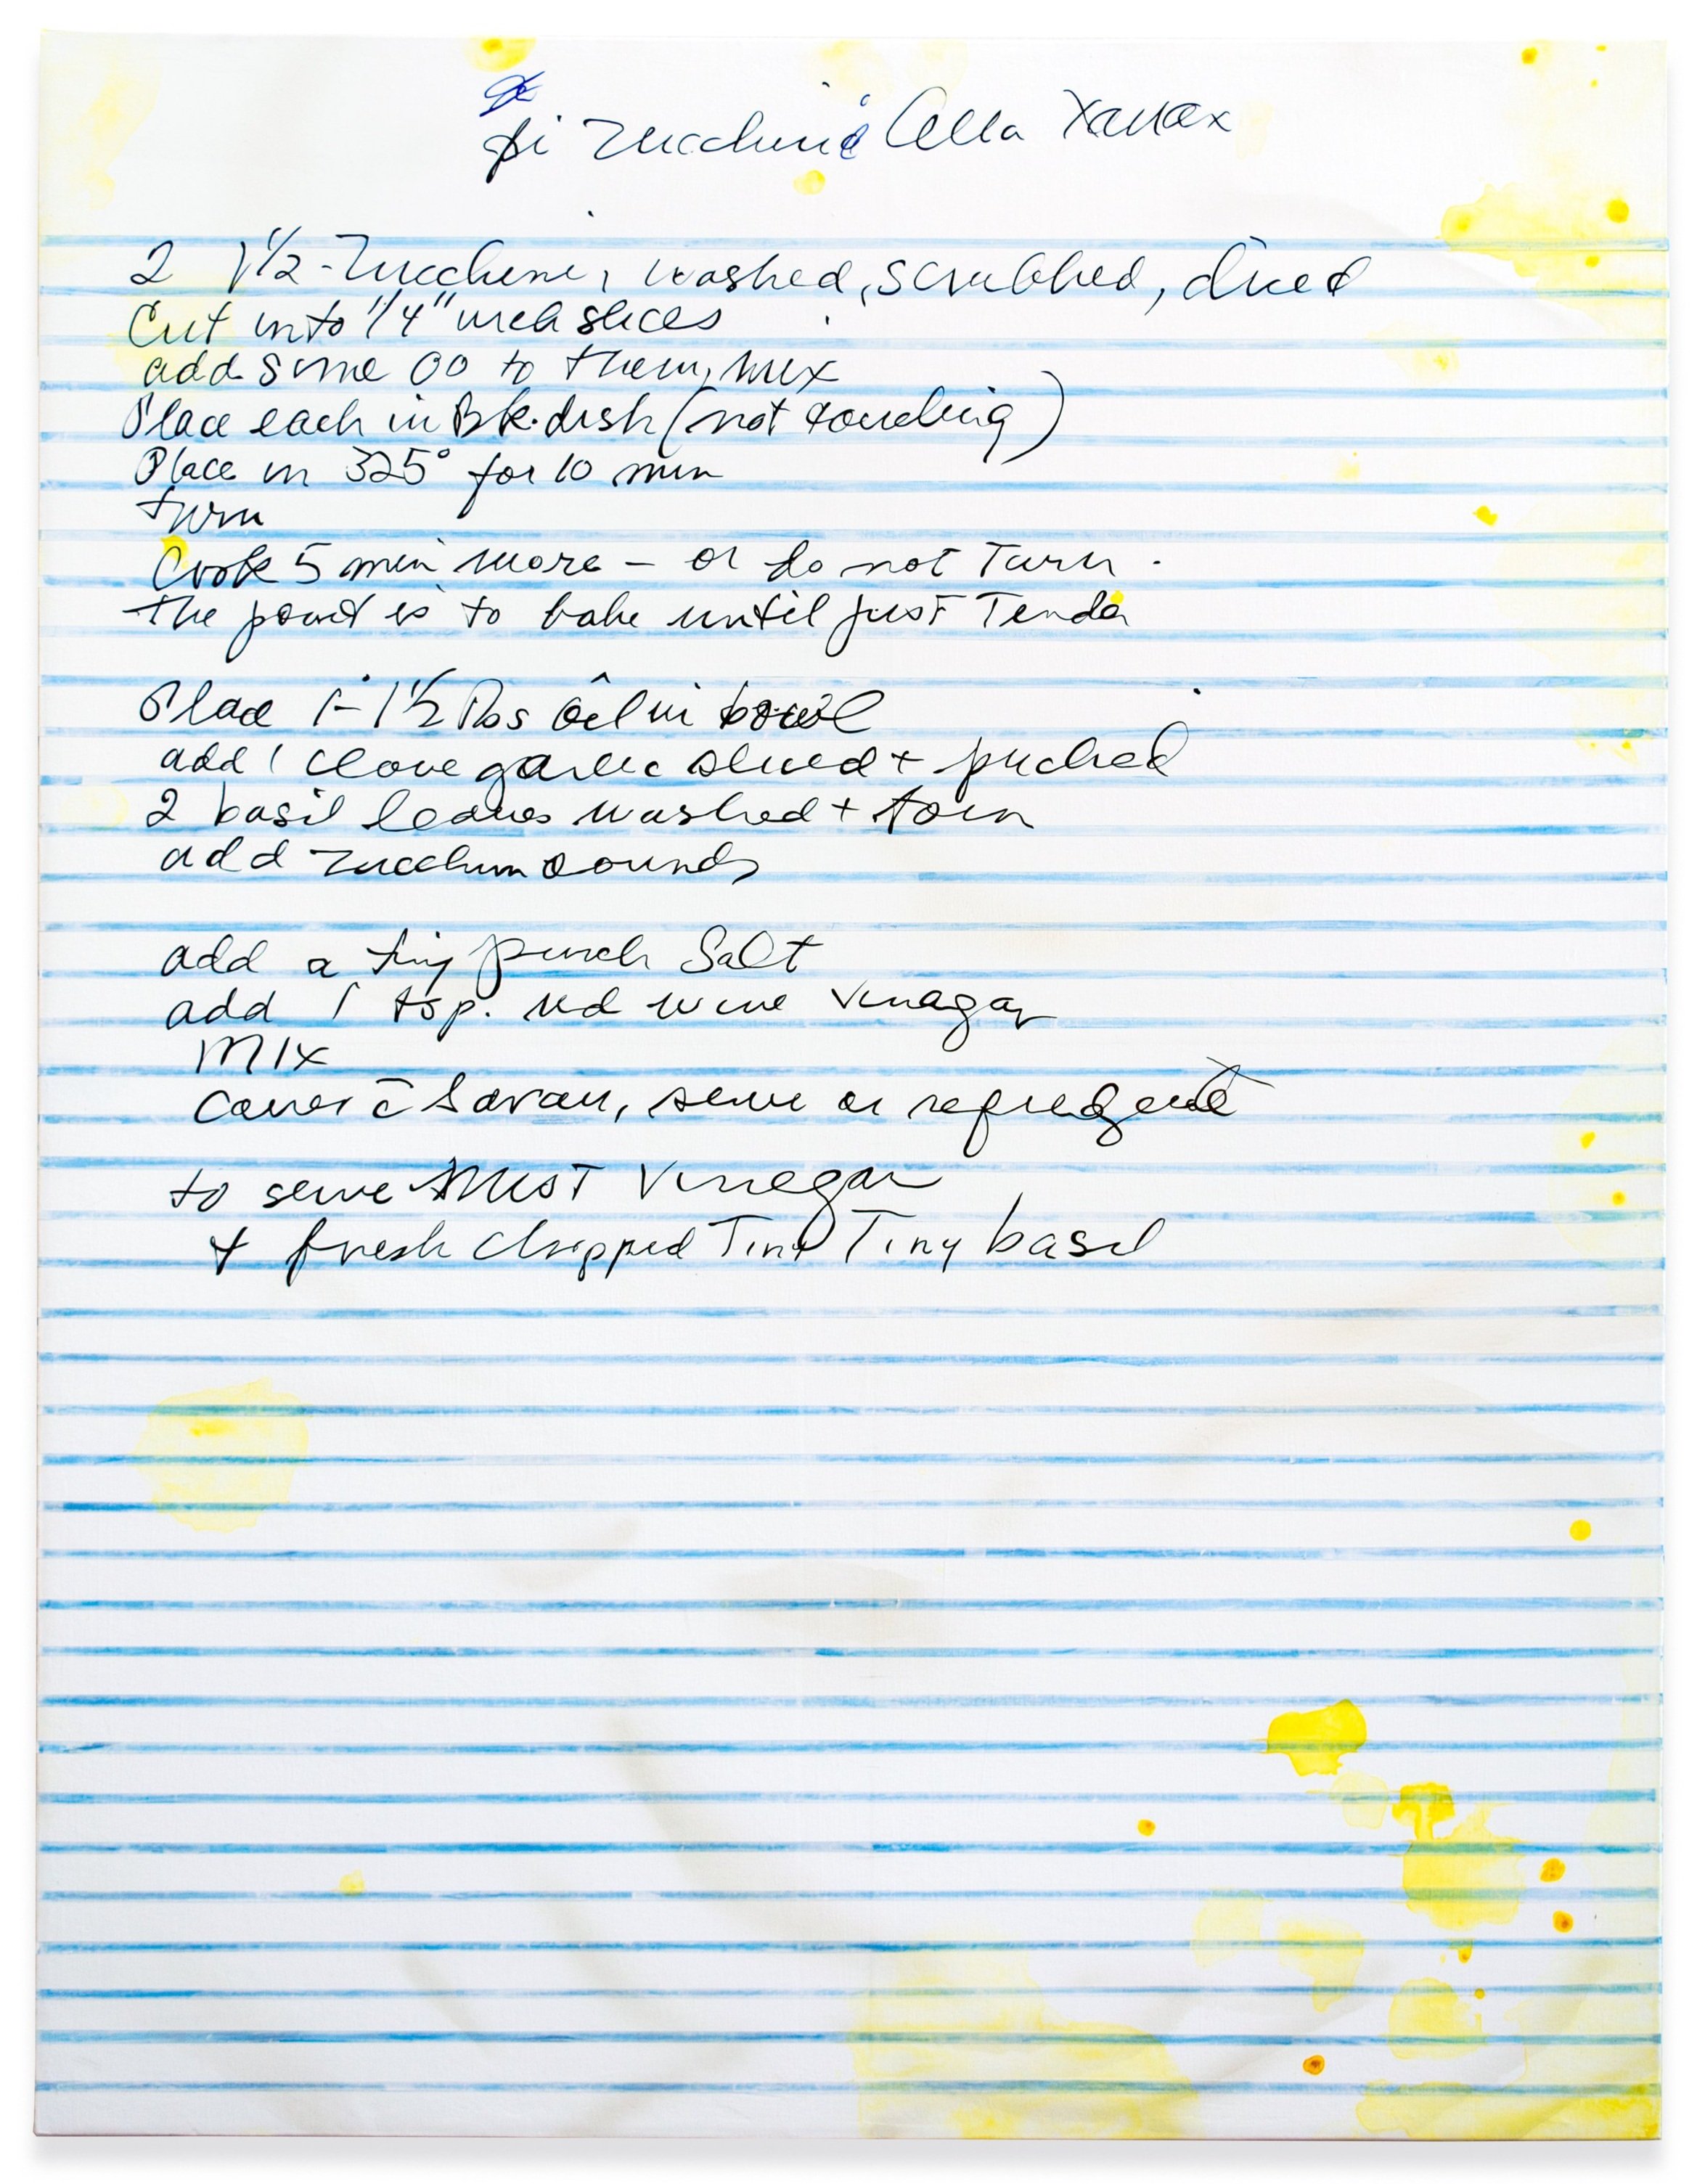 di Zucchine Alla Xanax
2 1 1/2 - Zucchini, washed, scrubbed, dried
Cut into 1/4" inch slices
add some OO to them, mix
Place each in Bk. dish (not touching)
Place in 325° for 10 min
turn
Cook 5 min more - or do not Turn.
the point is to bake until just Tender
Place 1 - 1 1/2 Tbs oil in bowl
add 1 clove garlic sliced +
2 basil leaves washed + torn
add zucchini rounds
add a tiny pinch Salt
add 1 tsp. red wine Vinagar
MIX
cover c̄ Saran, serve or refridgerate
to serve MIST Vinegar
+ fresh chopped Tiny Tiny basil